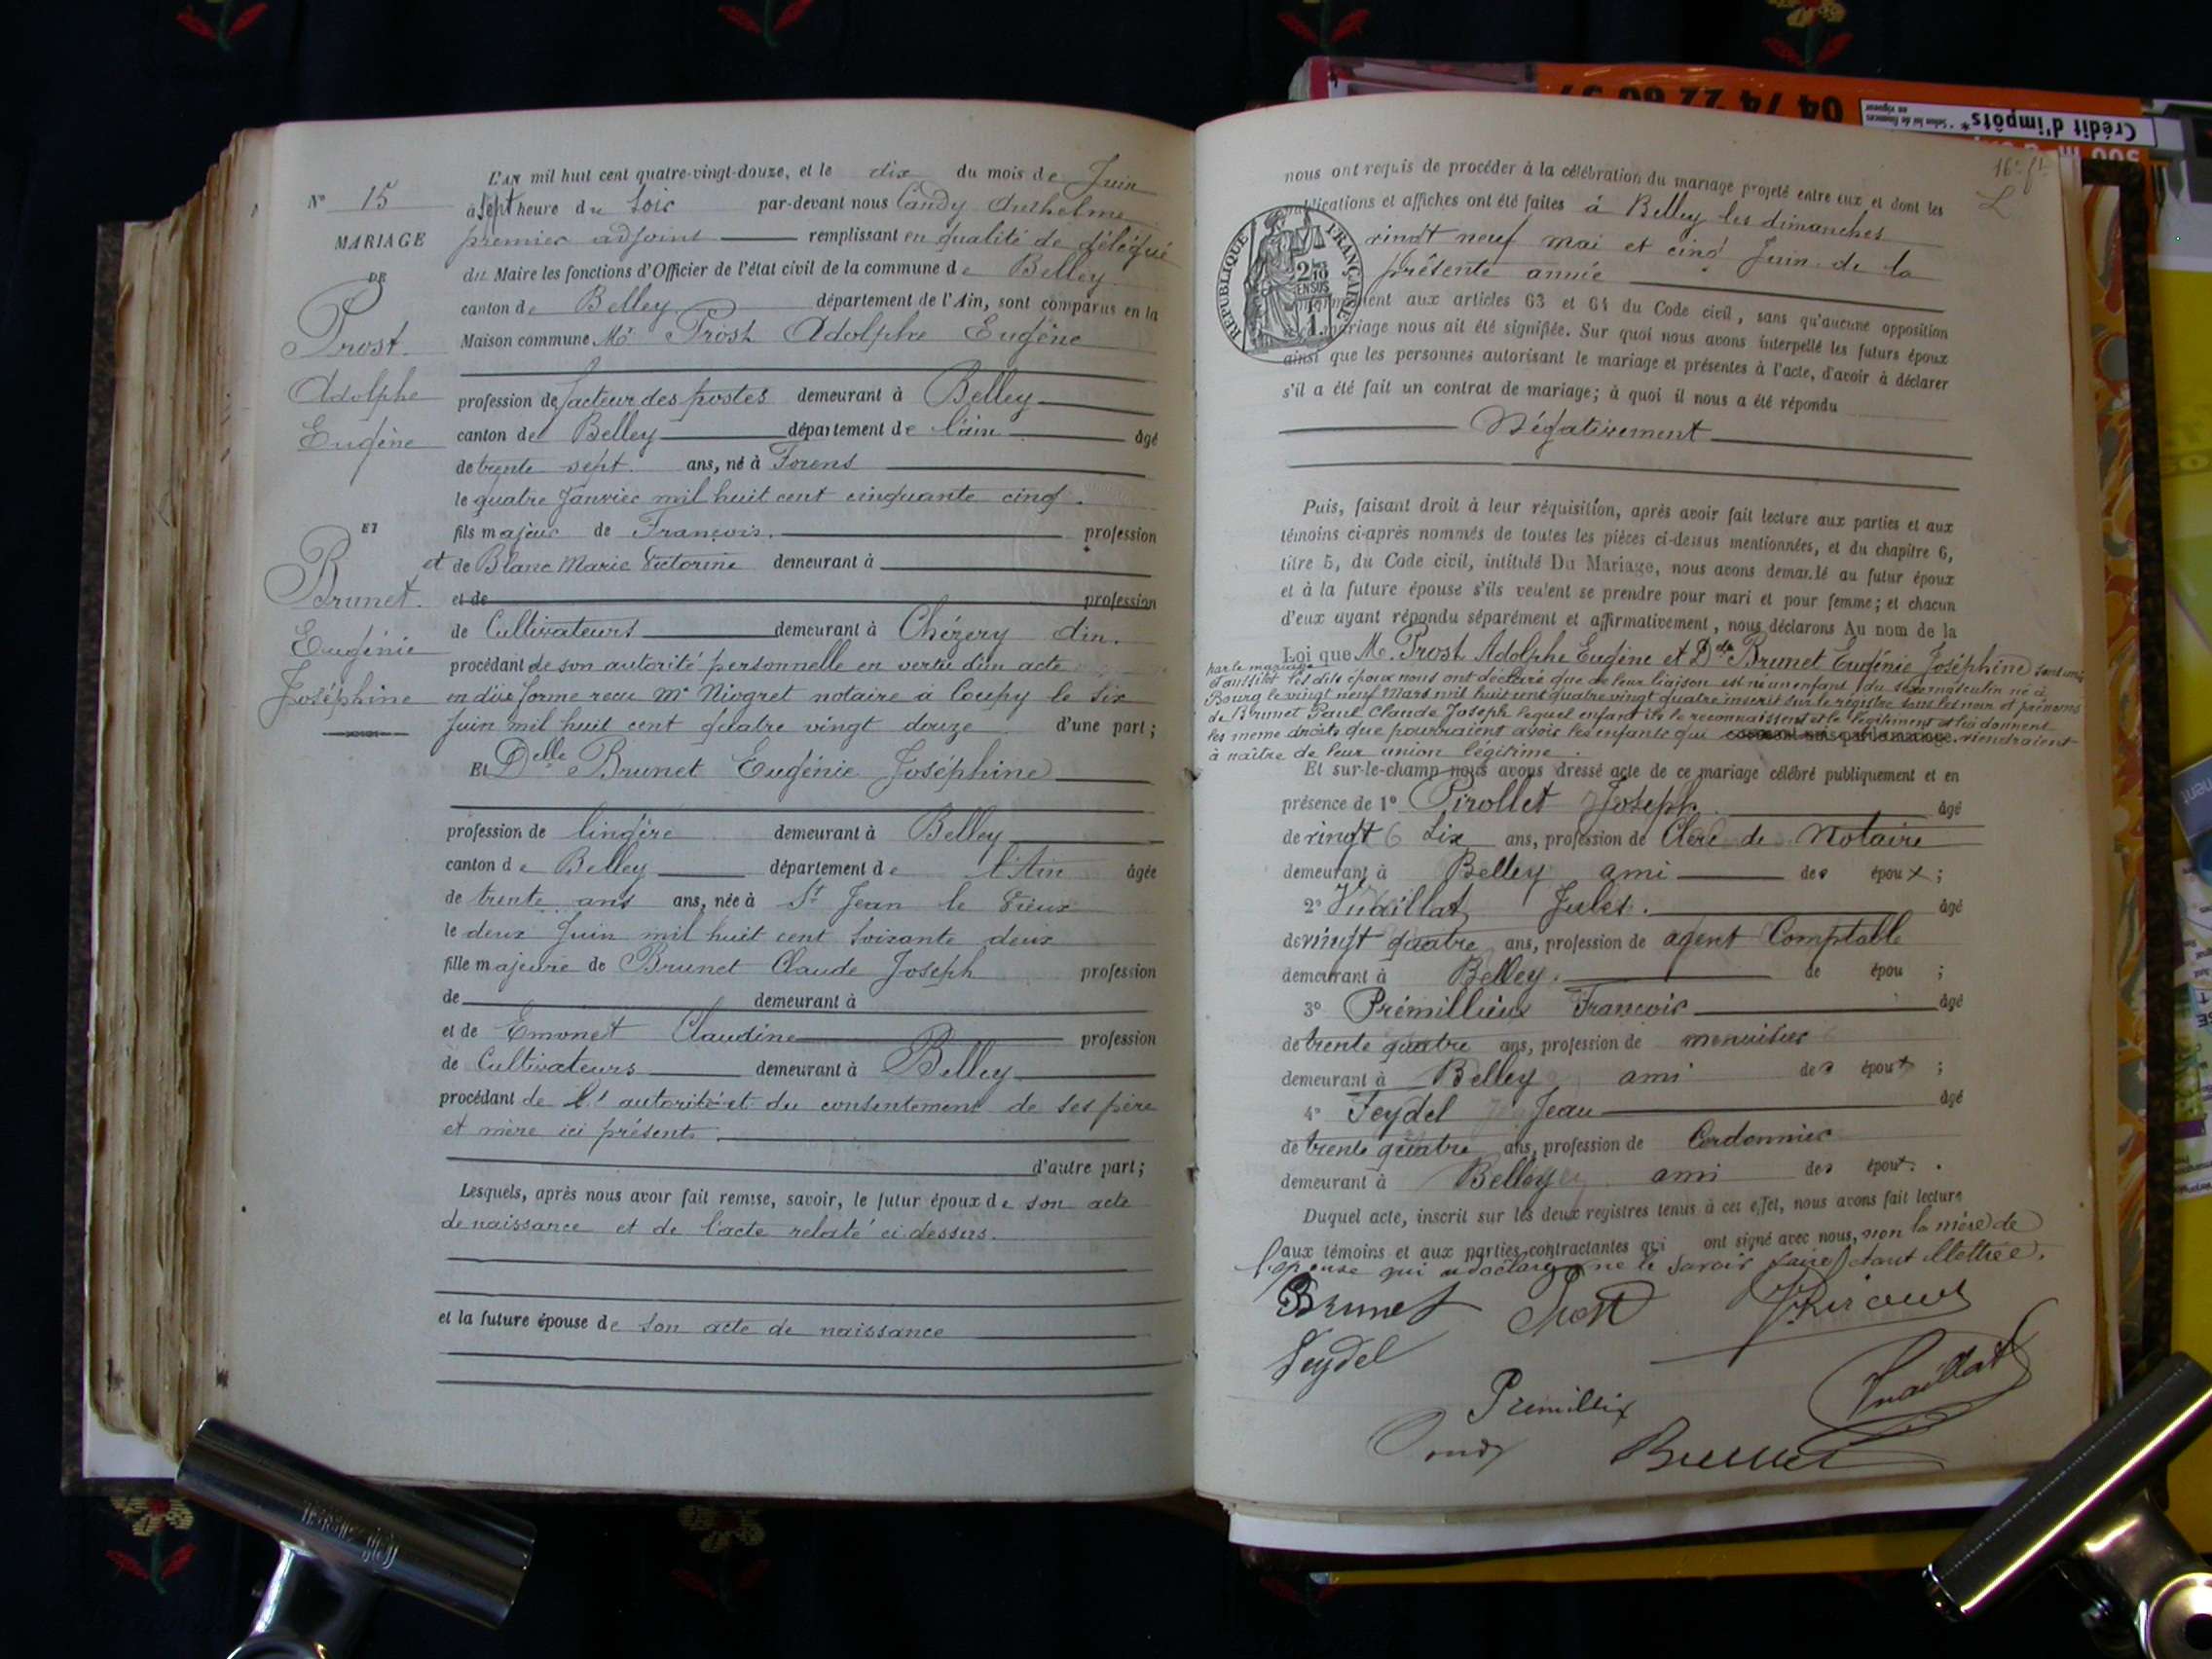 N° 15
MARIAGE
DE
Prost
Adolphe
Eugène
ET
Brunet
Eugénie
Joséphine
L'AN mil huit cent quatre-vingt-douze, et le dix du mois de Juin
à sept heure du soir par-devant nous Candy Anthelme
premier adjoint remplissant en qualité de délégué
du Maire les fonctions d'Officier de l'état civil de la commune de Belley
canton de Belley département de l'Ain, sont comparus en la
Maison commune Mr Prost Adolphe Eugène
profession de facteur des postes demeurant à Belley
canton de Belley département de l'ain âgé
de trente sept ans, né à Forens
le quatre Janvier mil huit cent cinquante cinq
fils majeur de François profession
et de Blanc Marie Victorine demeurant à
et de profession
de Cultivateurs demeurant à Chézery Ain.
procédant de son autorité personnelle en vertu d'un acte
en due forme recu Me Niogret notaire à Coupy le six
Juin mil huit cent quatre vingt douze d'une part;
Et Delle Brunet Eugénie Joséphine
profession de lingère demeurant à Belley
canton de Belley département de l'Ain âgée
de trente ans ans, née à St Jean le Vieux
le deux Juin mil huit cent soixante deux
fille majeure de Brunet Claude Joseph profession
de demeurant à
et de Emonet Claudine profession
de Cultivateurs demeurant à Belley
procédant de l' autorité et du consentement de ses père
et mère ici présents
d'autre part;
Lesquels, après nous avoir fait remise, savoir, le futur époux de son acte
de naissance et de l'acte relaté ci dessus.
et la future épouse de son acte de naissance
16e ft
nous ont requis de procéder à la célébration du mariage projeté entre eux et dont les
publications et affiches ont été faites à Belley les dimanches
vingt neuf mai et cinq Juin de la
présente année
RÉPUBLIQUE FRANÇAISE
2/10 EN SUS
aux articles 63 et 64 du Code civil, sans qu'aucune opposition
mariage nous ait été signifiée. Sur quoi nous avons interpellé les futurs époux
ainsi que les personnes autorisant le mariage et présentes à l'acte, d'avoir à déclarer
s'il a été fait un contrat de mariage; à quoi il nous a été répondu
Négativement
Puis, faisant droit à leur réquisition, après avoir fait lecture aux parties et aux
témoins ci-après nommés de toutes les pièces ci-dessus mentionnées, et du chapitre 6,
titre 5, du Code civil, intitulé Du Mariage, nous avons demandé au futur époux
et à la future épouse s'ils veulent se prendre pour mari et pour femme; et chacun
d'eux ayant répondu séparément et affirmativement, nous déclarons Au nom de la
Loi que M. Prost Adolphe Eugène et Dlle Brunet Eugénie Joséphine sont unis
par le mariage
d'aussitôt les dits époux nous ont déclaré que de leur liaison est né un enfant du sexe masculin né à
Bourg le vingt neuf Mars mil huit cent quatre vingt quatre inscrit sur le registre sous les nom et prénoms
de Brunet Paul Claude Joseph lequel enfant ils le reconnaissent et le légitiment et lui donnent
les meme droits que pourraient avoir les enfants qui viendraient
à naître de leur union légitime.
Et sur-le-champ nous avons dressé acte de ce mariage célébré publiquement et en
présence de 1° Pirollet Joseph âgé
de vingt six ans, profession de Clerc de Notaire
demeurant à Belley ami des époux;
2° Vuaillat Jules. âgé
de vingt quatre ans, profession de agent Comptable
demeurant à Belley. de épou ;
3° Prémillieux François âgé
de trente quatre ans, profession de menuisier
demeurant à Belley ami des époux ;
4° Feydel Jean âgé
de trente quatre ans, profession de Cordonnier
demeurant à Belley ami des époux.
Duquel acte, inscrit sur les deux registres tenus à cet effet, nous avons fait lecture
aux témoins et aux parties contractantes qui ont signé avec nous, non la mère de
l'épouse qui a déclaré ne le savoir faire étant illettrée.
Brunet Prost
Feydel
Vuaillat
Premillieux
Candy Brunet
04 74 22 60 57
Crédit d'impôts*
* Selon loi de finances
en vigueur